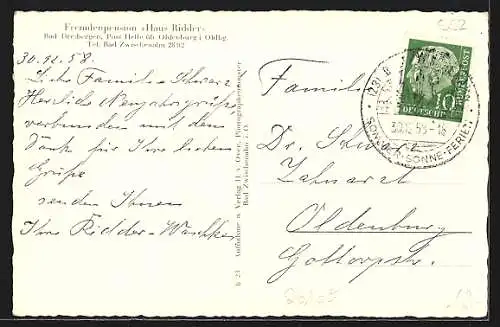 Fremdenpension »Haus Ridder«
Bad Dreibergen, Post Helle üb. Oldenburg i. Oldbg.
Tel. Bad Zwischenahn 2892
30.12.58.
Liebe Familie Schwarz
Herzliche Neujahrsgrüße,
verbunden mit dem
Dank für Ihre lieben
Grüße
senden Ihnen
Ihre Ridder-
Aufnahme u. Verlag H. v. Oven, Photographenmeister
Bad Zwischenahn i. O.
Familie
Dr. Schwarz
Zahnarzt
Oldenburg
Gottorpstr.
10
DEUTSCHE
BUNDESPOST
(23)
SOMMER-SONNE-FERIEN